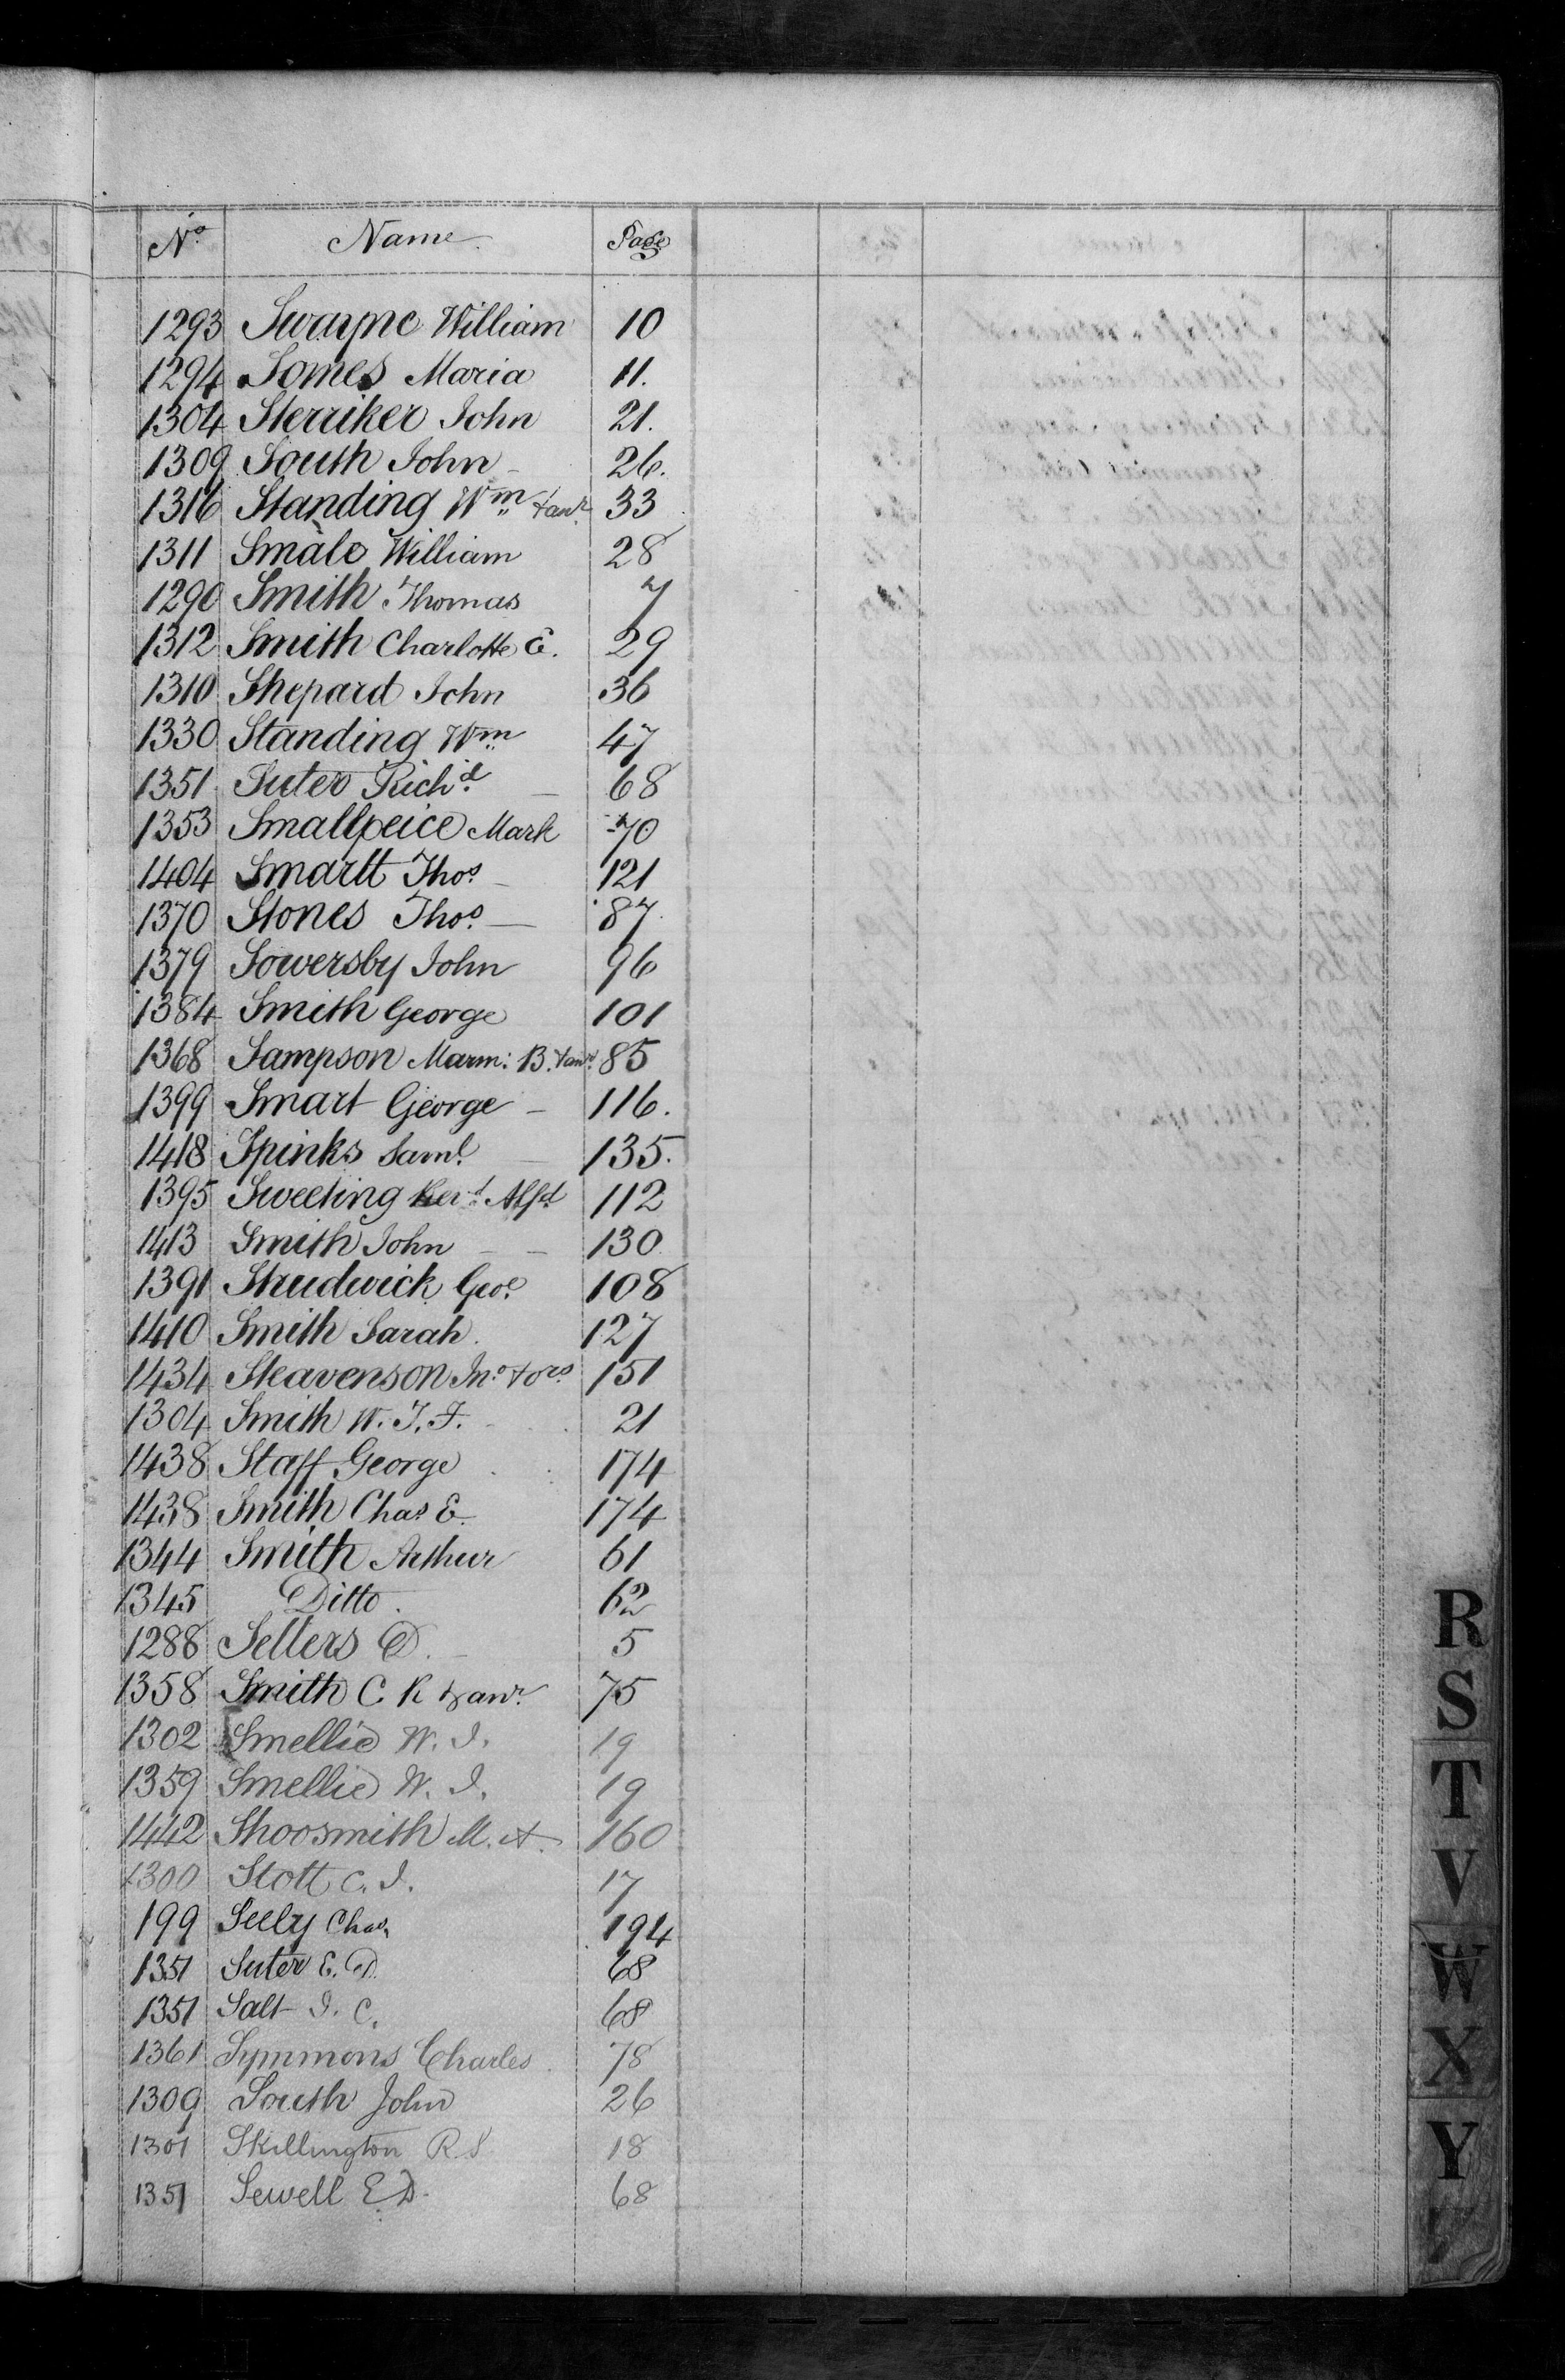 No. Name Page
1293 Swayne William 10
1294 Somes Maria 11.
1304 Sterriker John 21.
1309 South John 26.
1316 Standing Wm & anr 33
1311 Smale William 28
1290 Smith Thomas 7
1312 Smith Charlotte E. 29
1310 Shepard John 36
1330 Standing Wm 47
1351 Suter Richd. 68
1353 Smallpeice Mark 70
1404 Smartt Thos. 121
1370 Stones Thos. 87
1379 Sowersby John 96
1384 Smith George 101
1368 Sampson Marm: B. & anr. 85
1399 Smart George 116.
1418 Spinks Saml. 135.
1395 Sweeting Revd. Alfd 112
1413 Smith John 130
1391 Strudwick Geo. 108
1410 Smith Sarah. 127
1434 Steavenson Jno. & ors 151
1304 Smith W. T. F. 21
1438 Staff George 174
1438 Smith Chas E. 174
1344 Smith Arthur 61
1345 Ditto. 62
1288 Sellers D. 5
1358 Smith C R & anr. 75
1302 Smellie W. I. 19
1359 Smellie W. I. 19
1442 Shoosmith M. A. 160
1300 Stott C. I. 17
199 Seely Chas. 194
1351 Suter E. D. 68
1351 Salt I. C. 68
1361 Symmons Charles 78
1309 South John 26
1301 Skillington R S 18
1351 Sewell E D. 68
R
S
T
V
W
X
Y